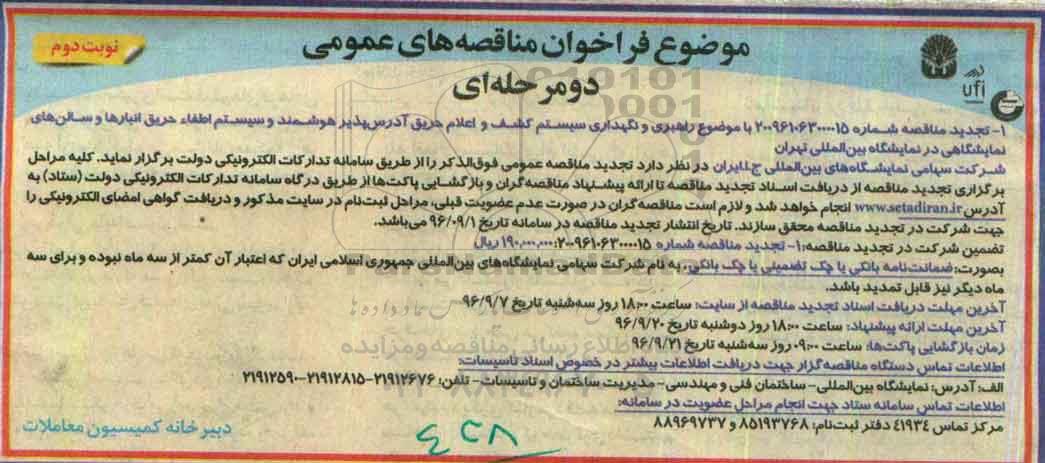 نوبت دوم
موضوع فراخوان مناقصه‌های عمومی
دو مرحله‌ای
ufi
۱- تجدید مناقصه شماره ۲۰۰۹۶۱۰۶۳۰۰۰۰۱۵ با موضوع راهبری و نگهداری سیستم کشف و اعلام حریق آدرس‌پذیر هوشمند و سیستم اطفاء حریق انبارها و سالن‌های
نمایشگاهی در نمایشگاه بین‌المللی تهران
شرکت سهامی نمایشگاه‌های بین‌المللی ج.ا.ایران در نظر دارد تجدید مناقصه عمومی فوق‌الذکر را از طریق سامانه تدارکات الکترونیکی دولت برگزار نماید. کلیه مراحل
برگزاری تجدید مناقصه از دریافت اسناد تجدید مناقصه تا ارائه پیشنهاد مناقصه‌گران و بازگشایی پاکت‌ها از طریق درگاه سامانه تدارکات الکترونیکی دولت (ستاد) به
آدرس www.setadiran.ir انجام خواهد شد و لازم است مناقصه‌گران در صورت عدم عضویت قبلی، مراحل ثبت‌نام در سایت مذکور و دریافت گواهی امضای الکترونیکی را
جهت شرکت در تجدید مناقصه محقق سازند. تاریخ انتشار تجدید مناقصه در سامانه تاریخ ۹۶/۰۹/۱ می‌باشد.
تضمین شرکت در تجدید مناقصه: ۱- تجدید مناقصه شماره ۲۰۰۹۶۱۰۶۳۰۰۰۰۱۵: ۱۹۰,۰۰۰,۰۰۰ ریال
بصورت: ضمانت‌نامه بانکی یا چک تضمینی یا چک بانکی، به نام شرکت سهامی نمایشگاه‌های بین‌المللی جمهوری اسلامی ایران که اعتبار آن کمتر از سه ماه نبوده و برای سه
ماه دیگر نیز قابل تمدید باشد.
آخرین مهلت دریافت اسناد تجدید مناقصه از سایت: ساعت ۱۸:۰۰ روز سه‌شنبه تاریخ ۹۶/۹/۷
آخرین مهلت ارائه پیشنهاد: ساعت ۱۸:۰۰ روز دوشنبه تاریخ ۹۶/۹/۲۰
زمان بازگشایی پاکت‌ها: ساعت ۰۹:۰۰ روز سه‌شنبه تاریخ ۹۶/۹/۲۱
اطلاعات تماس دستگاه مناقصه‌گزار جهت دریافت اطلاعات بیشتر در خصوص اسناد تاسیسات:
الف: آدرس: نمایشگاه بین‌المللی- ساختمان فنی و مهندسی- مدیریت ساختمان و تاسیسات- تلفن: ۲۱۹۱۲۶۷۶-۲۱۹۱۲۸۱۵-۲۱۹۱۲۵۹۰
اطلاعات تماس سامانه ستاد جهت انجام مراحل عضویت در سامانه:
مرکز تماس ۴۱۹۳۴ دفتر ثبت‌نام: ۸۵۱۹۳۷۶۸ و ۸۸۹۶۹۷۳۷
دبیرخانه کمیسیون معاملات